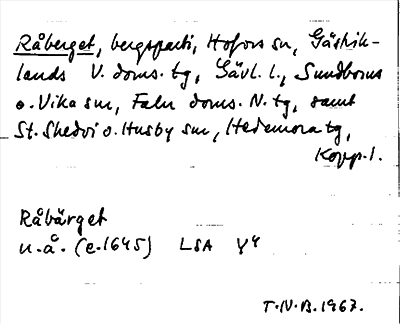 Råberget, bergsparti, Hofors sn, Gästrik-
lands V. doms. tg, Gävl. l., Sundborns
o. Vika snr, Falu doms. N. tg, samt
St. Skedvi o. Husby snr, Hedemora tg,
Kopp. l.
Råbärget
u.å. (e. 1645) LSA Y4
T.N.B. 1967.